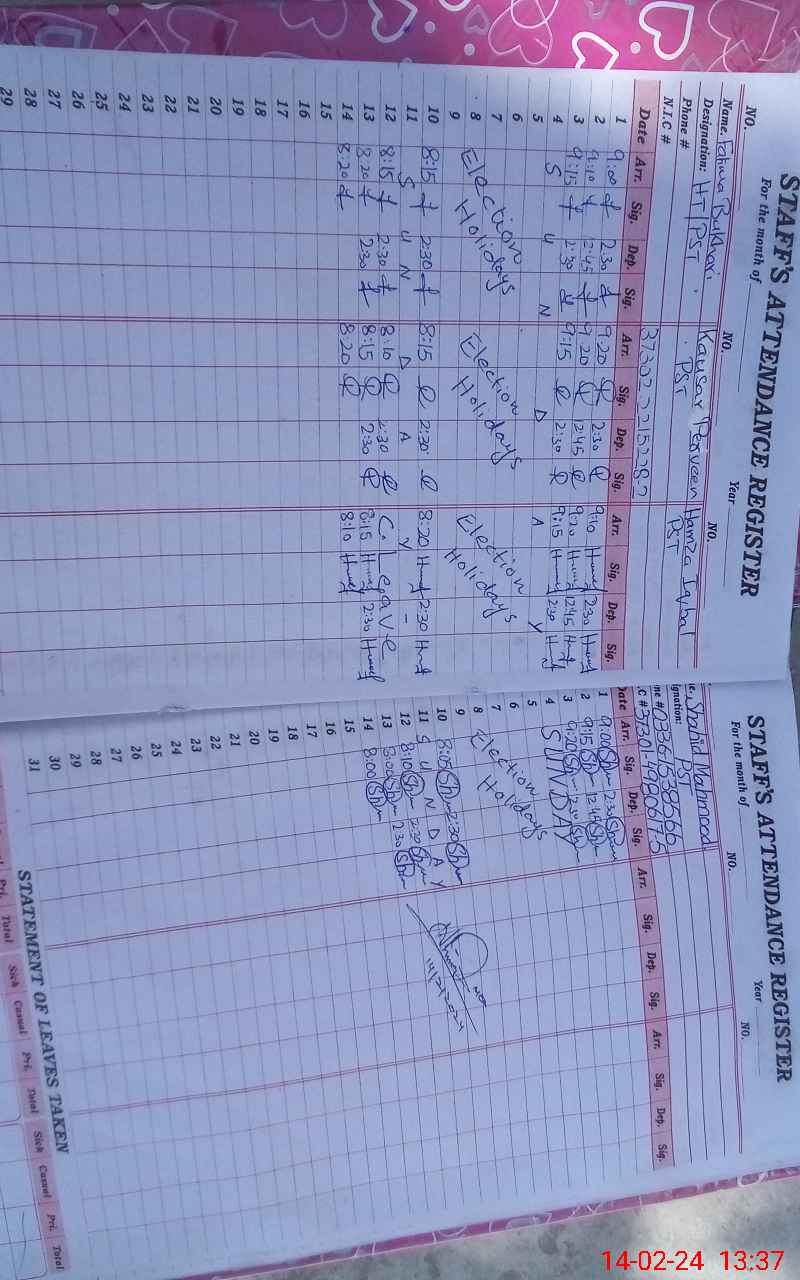 STAFF'S ATTENDANCE REGISTER
For the month of Year
NO. NO. NO.
Name. Fatima Bukhari Kausar Perveen Hamza Iqbal
Designation: HT/PST PST PST
Phone #
N.I.C # 37302
Date Arr. Sig. Dep. Sig. Arr. Sig. Dep. Sig. Arr. Sig. Dep. Sig.
1 9:00 2:30 9:20 2:30 9:10 2:30
2 9:10 2:45 9:20 2:45 9:20 2:45
3 9:15 2:30 9:15 2:30 9:15 2:30
4 S U N D A Y
5
6
7 Election Holidays Election Holidays Election Holidays
8
9
10 8:15 2:30 8:15 2:30 8:20 2:30
11 S U N D A Y
12 8:15 2:30 8:10 2:30 C. Leave
13 8:20 2:30 8:15 2:30 8:15 2:30
14 8:20 8:20 8:10
15
16
17
18
19
20
21
22
23
24
25
26
27
28
29
STAFF'S ATTENDANCE REGISTER
For the month of Year
NO. NO.
Shahid Mahmood
PST
Date Arr. Sig. Dep. Sig. Arr. Sig. Dep. Sig. Arr. Sig. Dep. Sig.
1 9:00 2:30
2 9:15 2:45
3 9:20 2:30
4 SUNDAY
5
6
7 Election Holidays
8
9
10 8:05 2:30
11 S U N D A Y
12 8:10 2:30
13 8:00 2:30
14 8:00
14/2/2024
15
16
17
18
19
20
21
22
23
24
25
26
27
28
29
30
31
STATEMENT OF LEAVES TAKEN
Pri. Total Sick Casual Pri. Total Sick Casual Pri. Total
14-02-24 13:37